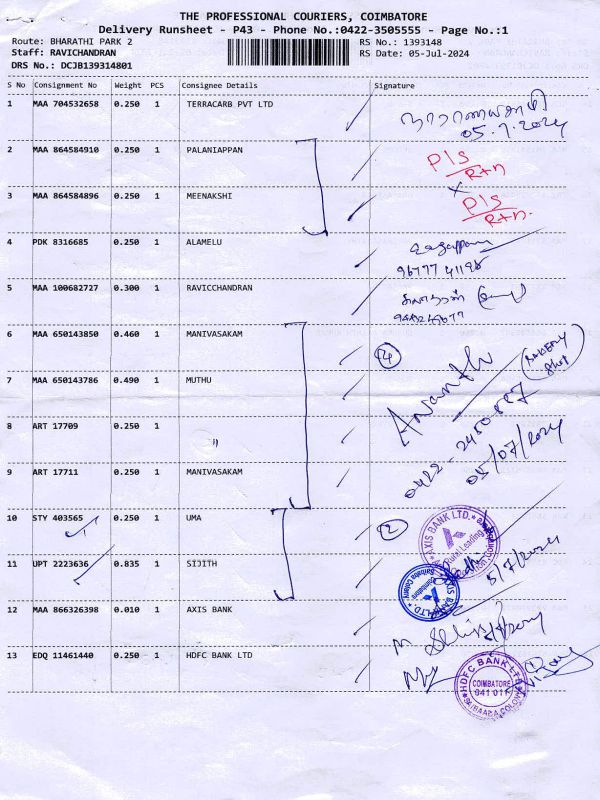 THE PROFESSIONAL COURIERS, COIMBATORE
Delivery Runsheet - P43 - Phone No.:0422-3505555 - Page No.:1
Route: BHARATHI PARK 2 RS No.: 1393148
Staff: RAVICHANDRAN RS Date: 05-Jul-2024
DRS No.: DCJB139314801
S No Consignment No Weight PCS Consignee Details Signature
1 MAA 704532658 0.250 1 TERRACARB PVT LTD
05.7.2024
2 MAA 864584910 0.250 1 PALANIAPPAN P/S Rtn
3 MAA 864584896 0.250 1 MEENAKSHI P/S Rtn.
4 PDK 8316685 0.250 1 ALAMELU
96777 41196
5 MAA 100682727 0.300 1 RAVICCHANDRAN
6 MAA 650143850 0.460 1 MANIVASAKAM 4
BAKERY Shop
7 MAA 650143786 0.490 1 MUTHU Ananth
8 ART 17709 0.250 1 "
0422-2450887
05/07/2024
9 ART 17711 0.250 1 MANIVASAKAM
10 STY 403565 0.250 1 UMA 2
AXIS BANK LTD.
11 UPT 2223636 0.835 1 SIJITH 5/7/2024
AXIS BANK LTD. Coimbatore
12 MAA 866326398 0.010 1 AXIS BANK
13 EDQ 11461440 0.250 1 HDFC BANK LTD
HDFC BANK LTD
COIMBATORE
641 011
SAIBAABA COLONY